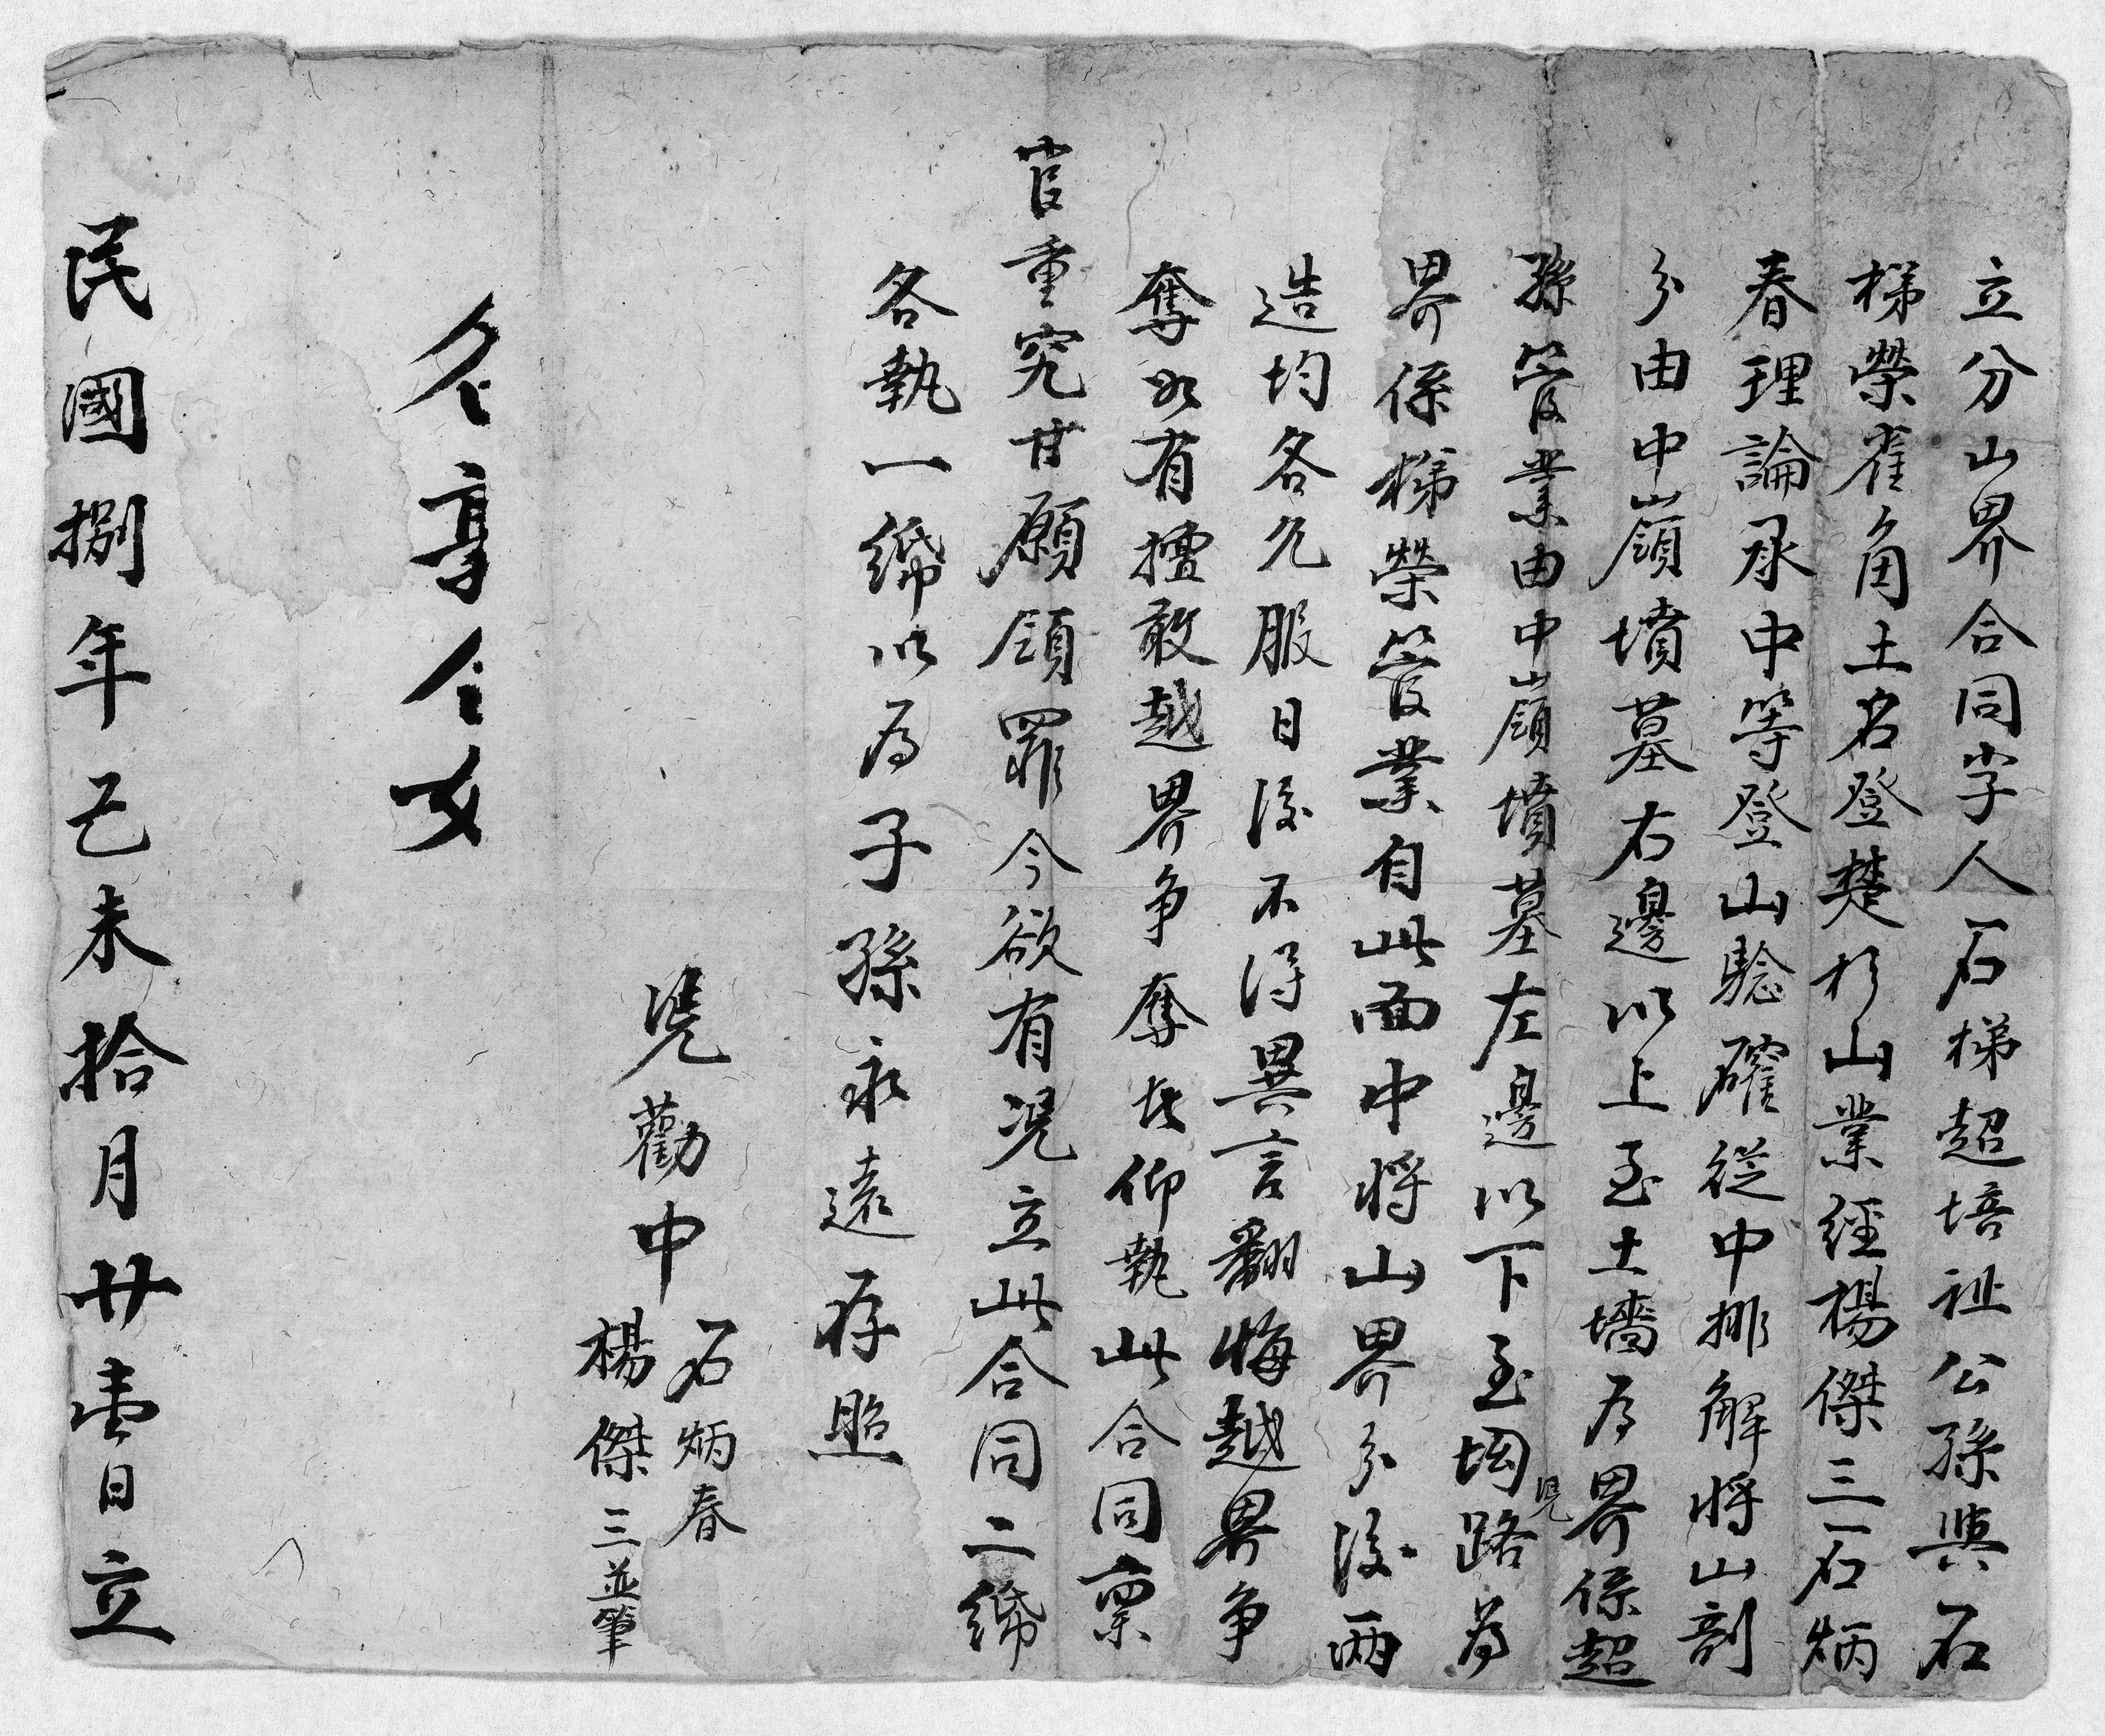 立分山界合同字人石梯超培祉公孫與石
梯榮雀角土名登楚杉山業經楊傑三石炳
春理論承中等登山驗確從中排解將山剖
分由中嶺墳墓右邊以上至土墻為界係超
孫管業由中嶺墳墓左邊以下至坳路為
界係梯榮管業自此面中將山界分後兩
造均各允服日後不得異言翻悔越界爭
奪如有擅敢越界爭奪者仰執此合同稟
官重究甘願領罪今欲有憑立此合同二紙
各執一紙以為子孫永遠存照
憑勸中
石炳春
楊傑三並筆
民國捌年己未拾月廿壹日立